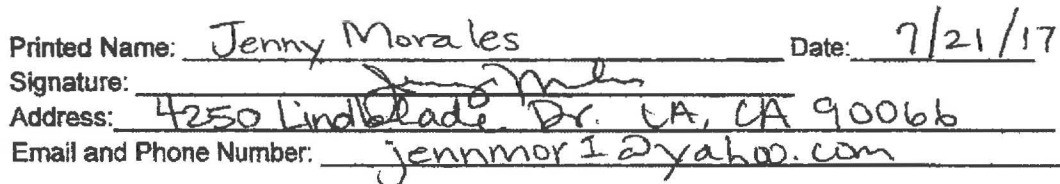 Printed Name: Jenny Morales Date: 7/21/17
Signature:
Address: 4250 Lindblade Dr. LA, CA 90066
Email and Phone Number: jennmor1@yahoo.com